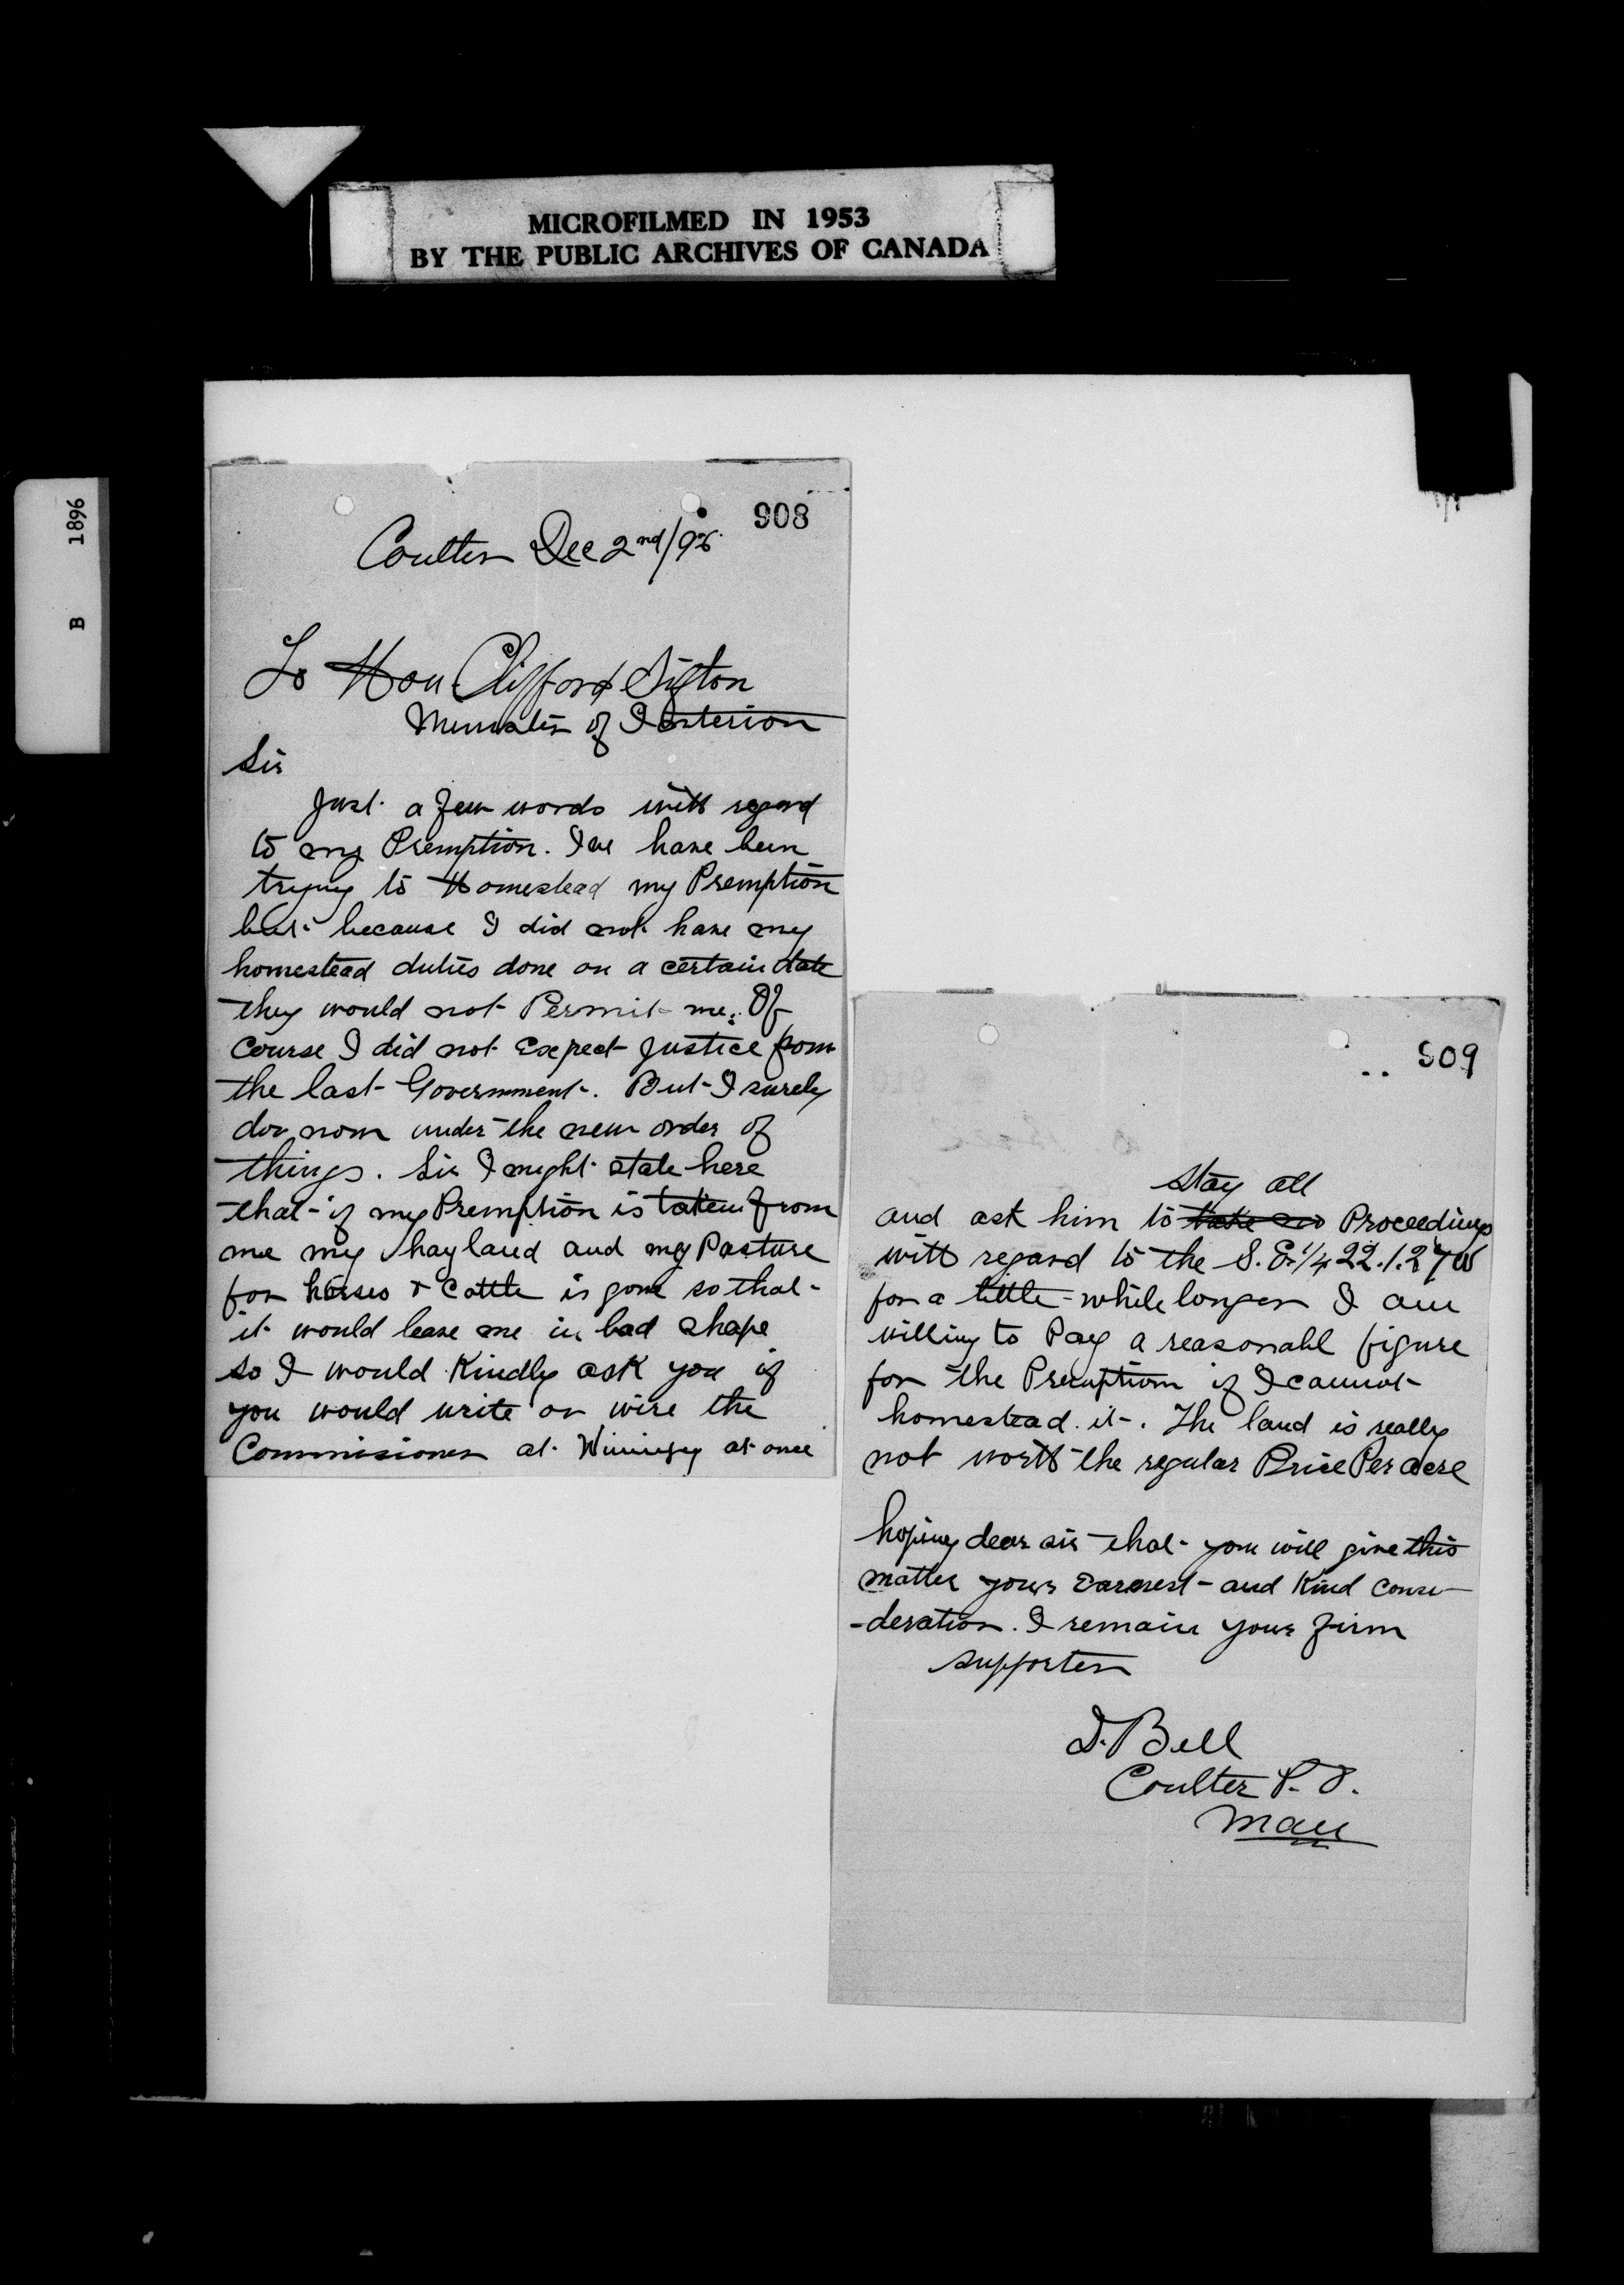 MICROFILMED IN 1953
BY THE PUBLIC ARCHIVES OF CANADA
B 1896
908
Coulter Dec 2nd/96.
To Hon Clifford Sifton
Minister of Interior
Sir
Just a few words with regard
to my Premption. I've have been
trying to Homestead my Premption
but because I did not have my
homestead duties done on a certain date
they would not Permit me. Of
course I did not Expect Justice from
the last Government. But I surely
do now under the new order of
things. Sir I might state here
that if my Premption is taken from
me my hayland and my Pasture
for horses & Cattle is gone so that
it would leave me in bad shape
so I would Kindly ask you if
you would write or wire the
Commisioner at Winnipeg at once
909
stay all
and ask him to Proceedings
with regard to the S.E. 1/4 22.1.27W
for a little while longer I am
willing to Pay a reasonabl figure
for the Premption if I cannot
homestead it. The land is really
not worth the regular Price Per acre
hoping dear sir that you will give this
matter your Earnest and Kind consi-
-deration. I remain your firm
supporter
D. Bell
Coulter P.O.
Man